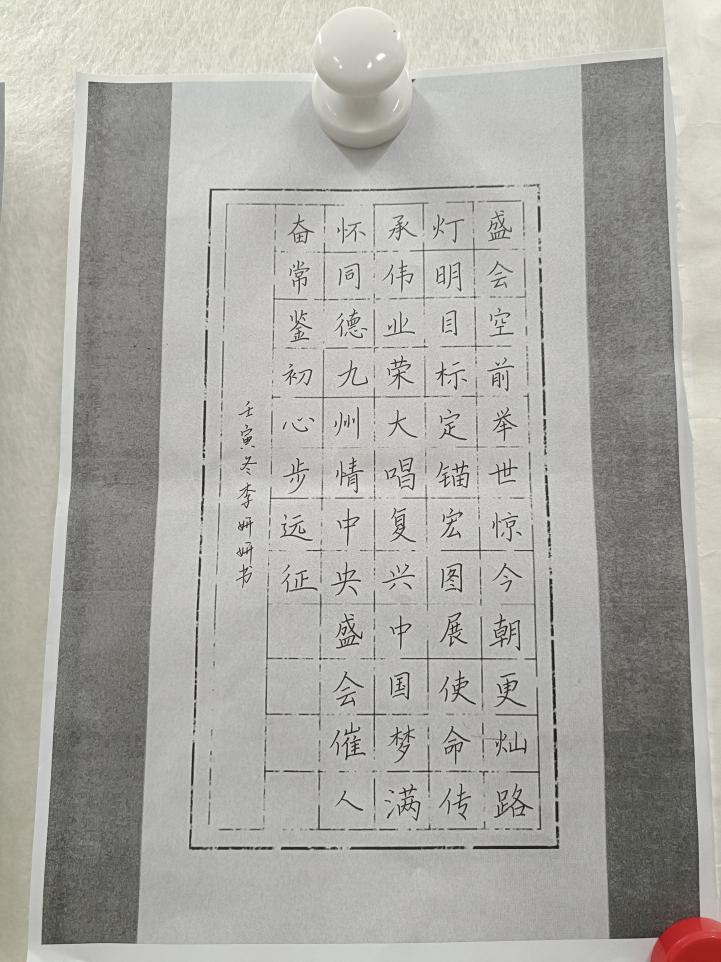 盛会空前举世惊今朝更灿路
灯明目标定锚宏图展使命传
承伟业荣大唱复兴中国梦满
怀同德九州情中央盛会催人
奋常鉴初心步远征
壬寅冬李妍妍书